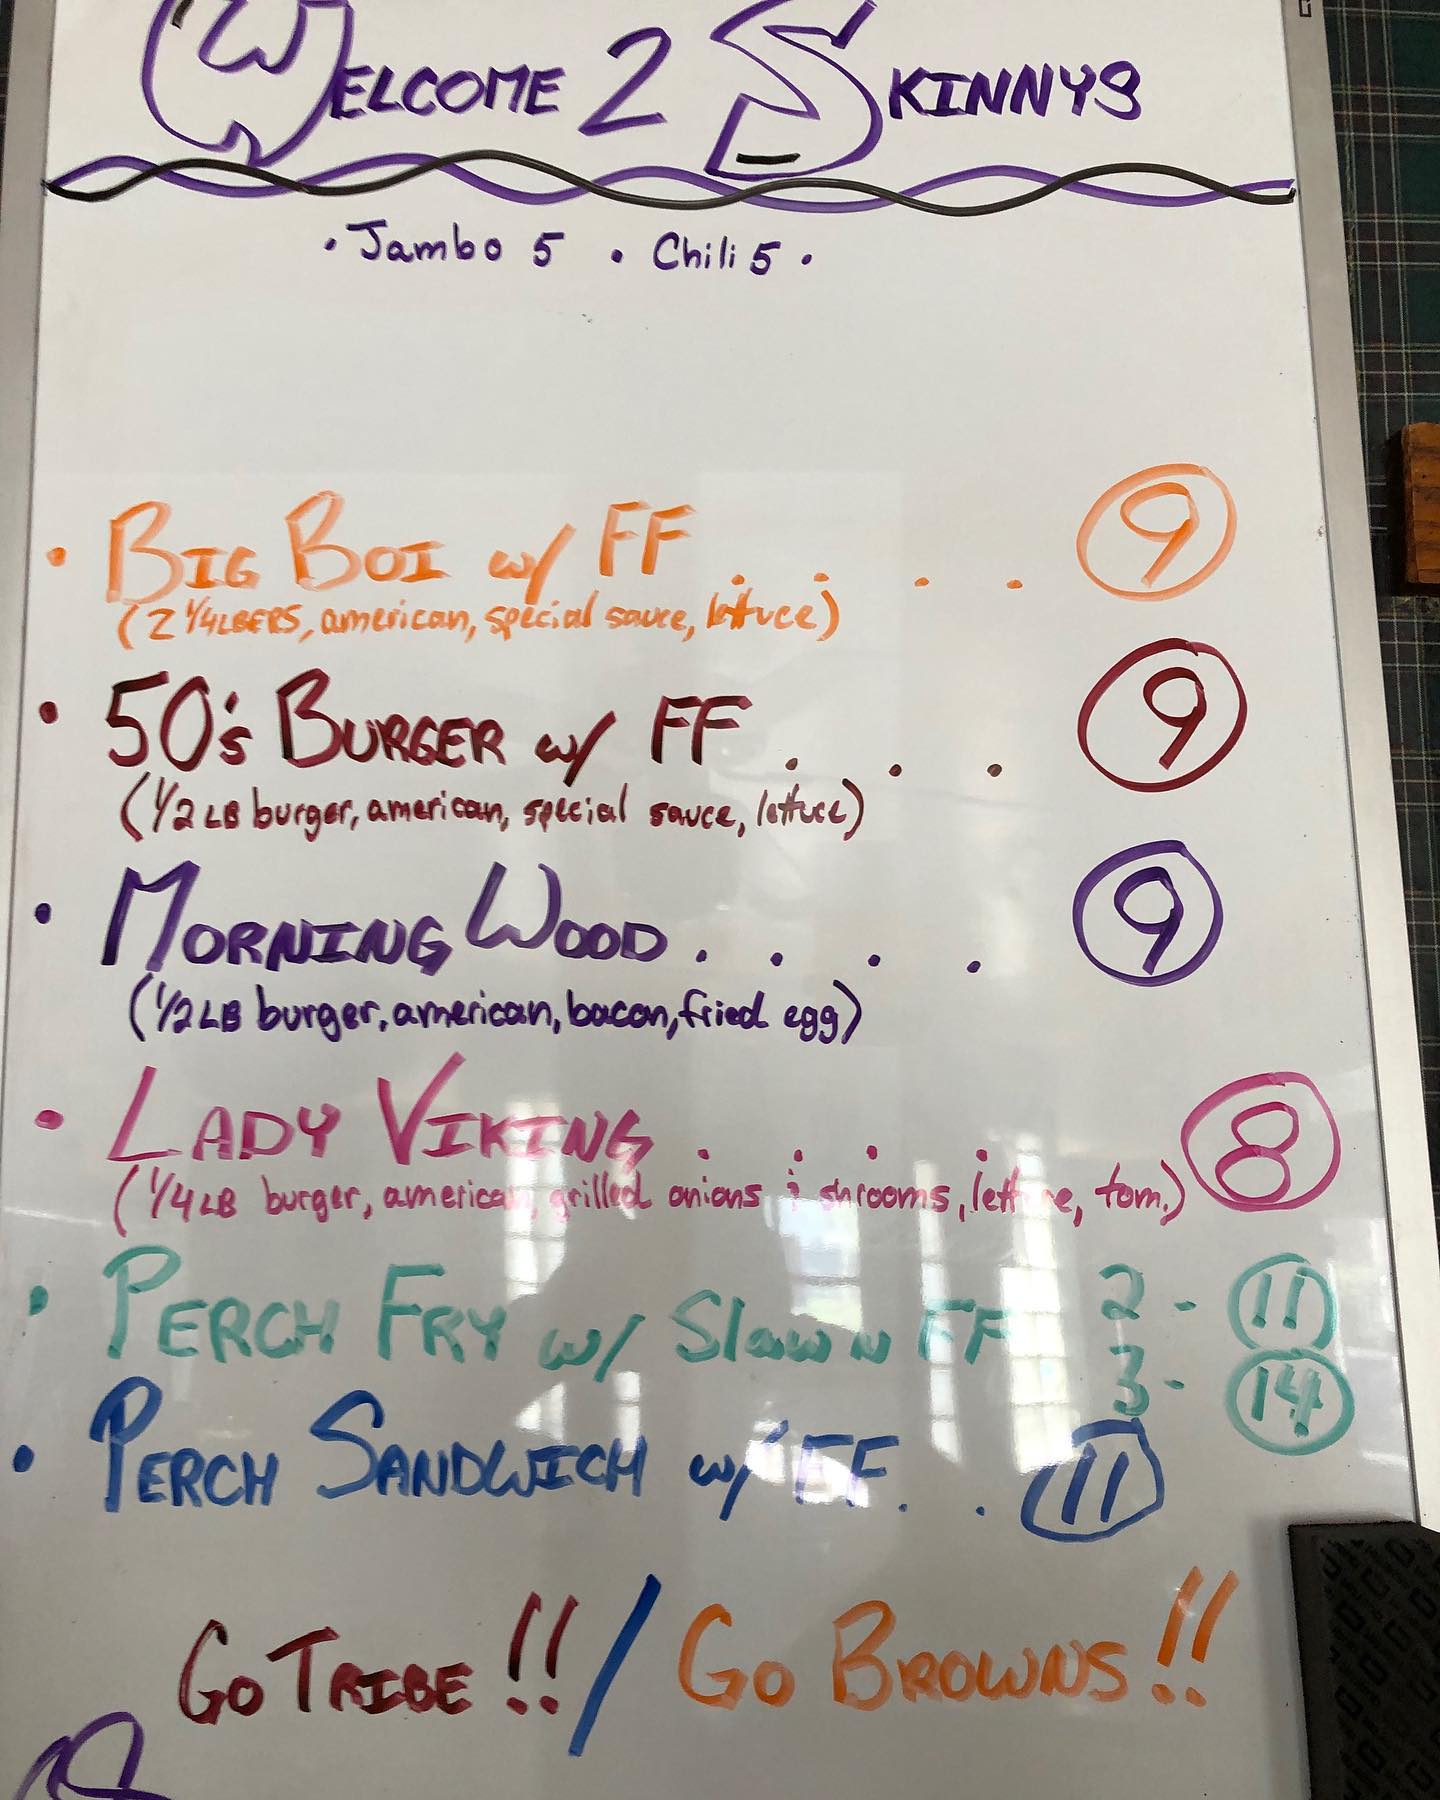 WELCOME 2 SKINNYS
· Jambo 5 · Chili 5 ·
· BIG BOI w/ FF . . . . 9
(2 1/4LBERS, american, special sauce, lettuce)
· 50's BURGER w/ FF . . . 9
(1/2 LB burger, american, special sauce, lettuce)
· MORNING WOOD . . . . 9
(1/2 LB burger, american, bacon, fried egg)
· LADY VIKING . . . . 8
(1/4 LB burger, american, grilled onions & shrooms, lettuce, tom.)
· PERCH FRY w/ Slaw N FF 2 - 11
3 - 14
· PERCH SANDWICH w/ FF . . 11
GO TRIBE!! / GO BROWNS!!